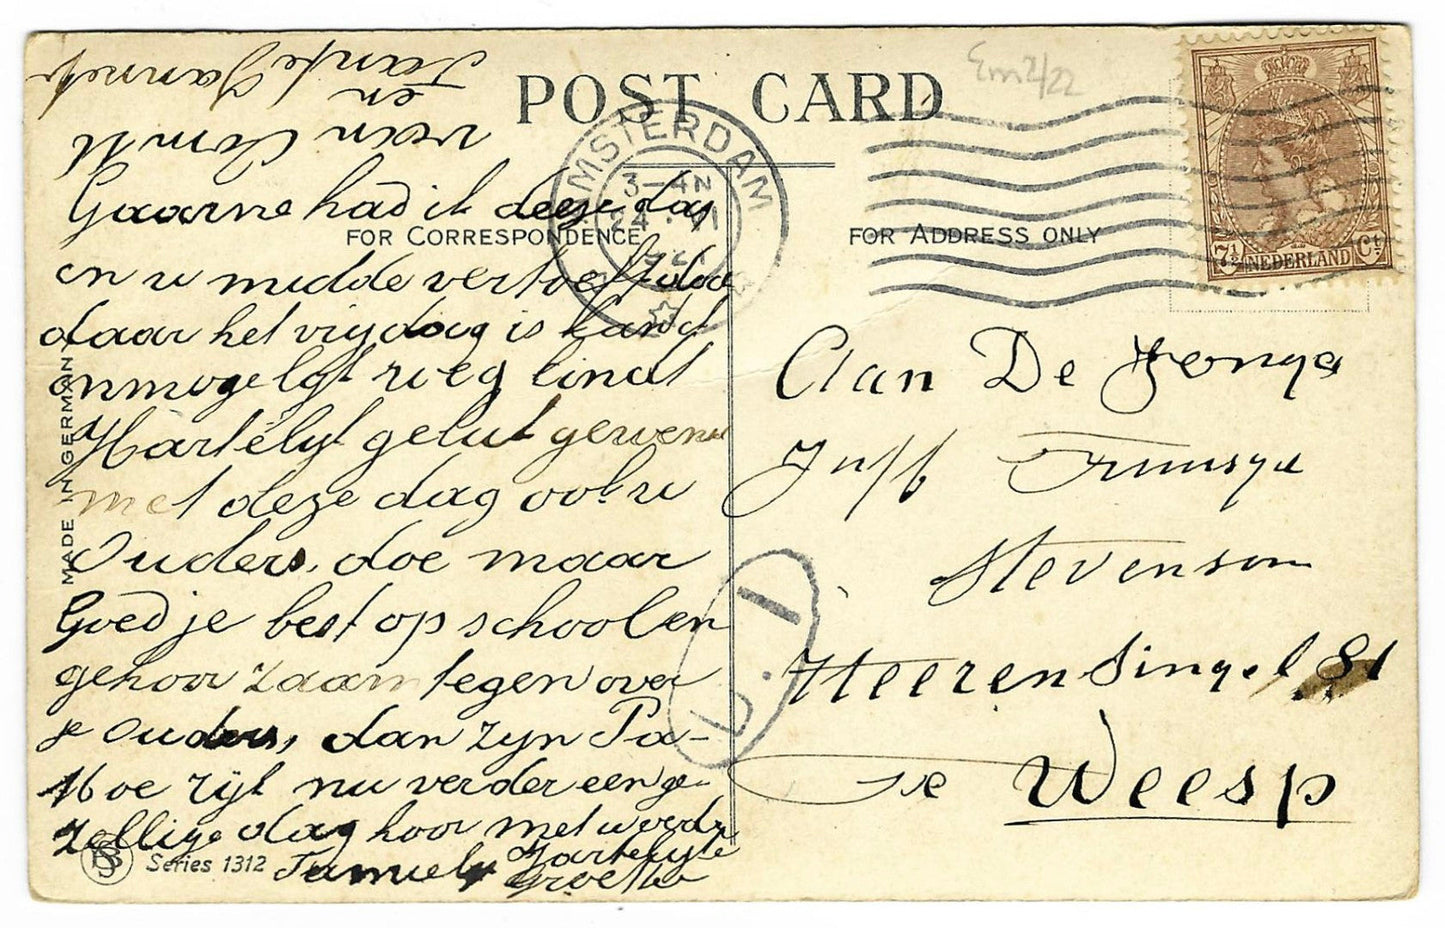 POST CARD
Em 2/22
AMSTERDAM
3-4N
24 · VI
FOR CORRESPONDENCE
FOR ADDRESS ONLY
7½ NEDERLAND Ct
MADE IN GERMANY
Gaarne had ik deeze dag
in u midde vertoeft doc
daar het vrydag is
onmogelyk
Hartelyk geluk gewens
met deze dag ook u
Ouders, doe maar
Goed je best op school en
gehoorzaam tegenover
je Ouders, dan zyn Pa-
Moe ryk nu verder een ge-
zellige dag hoor met u
Series 1312
Hartelyke
groeten
van
en
Tante
Aan De Jonge
Juff Truusje
Stevenson
Heerensingel 81
Te Weesp